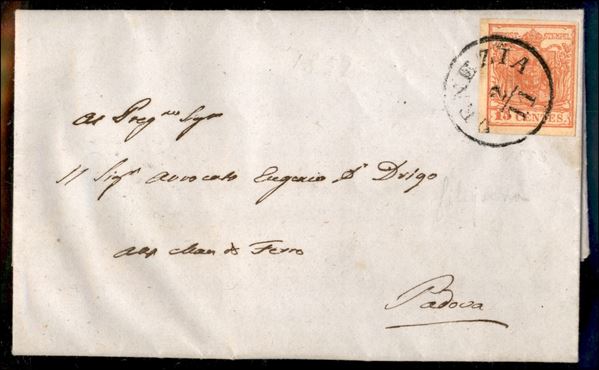 VENEZIA
2/11
15 CENTES.
Al Preg.mo Sigr
Il Sigr Avvocato Eugenio Dr Drigo
alla Man di Ferro
Padova